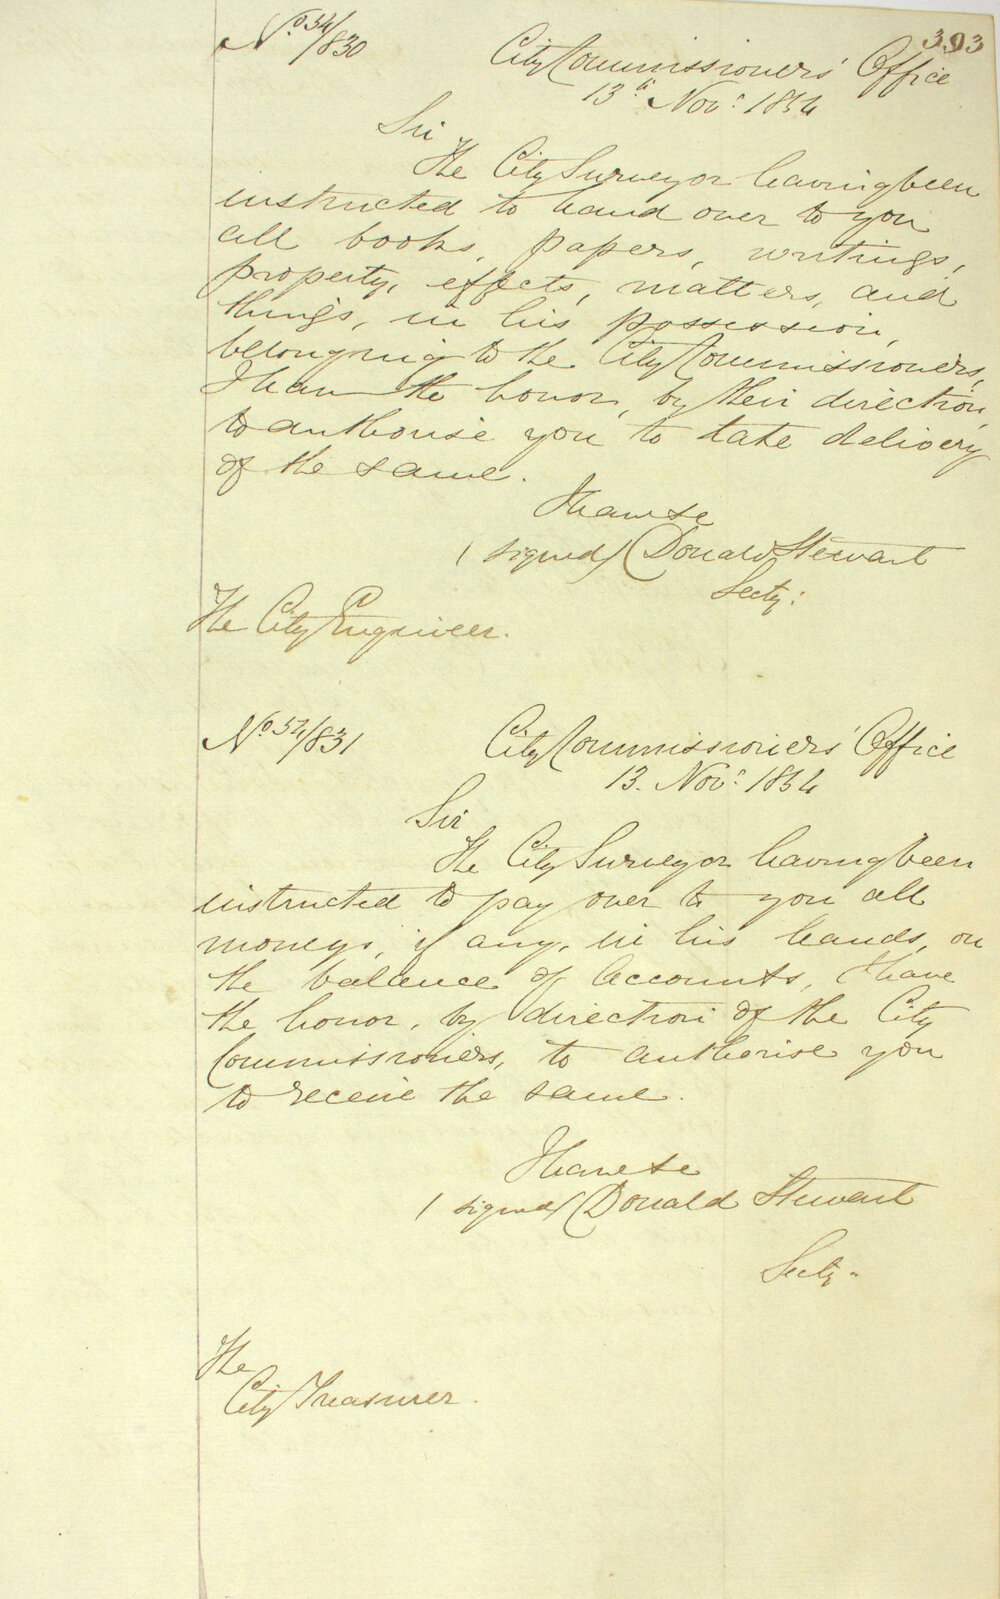 393
No 54/830
City Commissioners' Office
13th Novr 1854
Sir
The City Surveyor having been
instructed to hand over to you
all books, papers, writings,
property, effects, matters, and
things, in his possession,
belonging to the City Commissioners,
I have the honor, by their direction,
to authorise you to take delivery
of the same.
I have &c
(signed) Donald Stewart
Secty:
The City Engineer.
No 54/831
City Commissioners' Office
13. Novr 1854
Sir
The City Surveyor having been
instructed to pay over to you all
moneys, if any, in his hands, on
the balance of Accounts, I have
the honor, by direction of the City
Commissioners, to authorise you
to receive the same.
I have &c
(signed) Donald Stewart
Secty.
The
City Treasurer.